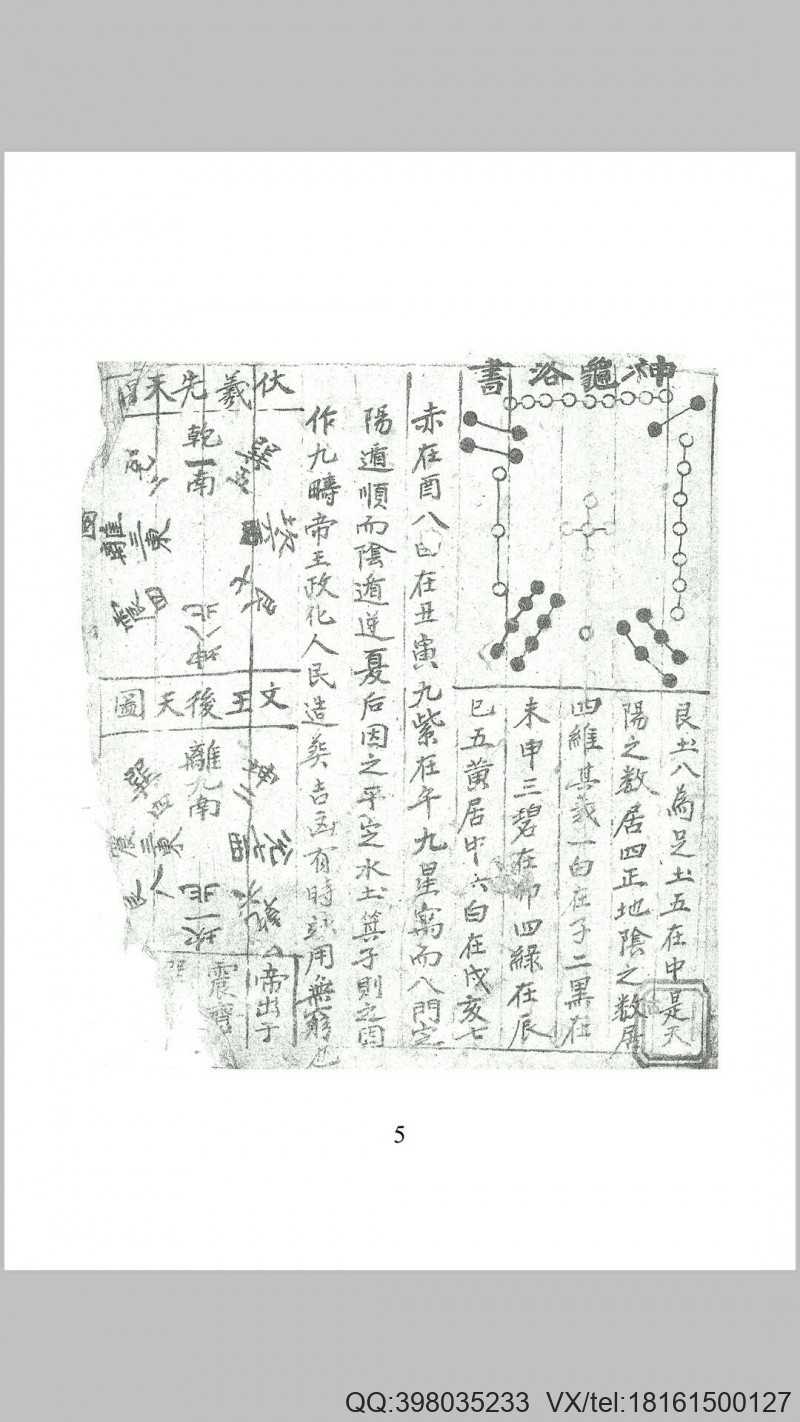 神龜洛書
艮土八為足土五在中是天
陽之数居四正地陰之数居
四維其義一白在子二黒在
未申三碧在卯四緑在辰
巳五黄居中六白在戌亥七
赤在酉八白在丑寅九紫在午九星寓而八門定
陽遁順而陰遁逆夏后因之平定水土箕子則之因
作九疇帝王政化人民造葬吉凶有時致用無窮也
伏羲先天
乾一南
離三東
震四
坤八北
文王後天圖
離九南
震三東
坎一北
帝出于
震齊
5
QQ:398035233 VX/tel:18161500127